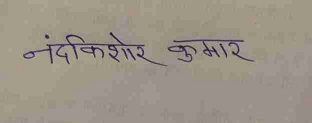 नंदकिशोर कुमार